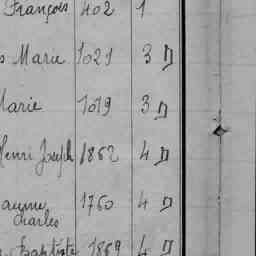 François 402 1
Marie 1021 3 D
Marie 1019 3 D
Henri Joseph 1862 4 D
1760 4 D
Charles
Baptiste 1869 4 D